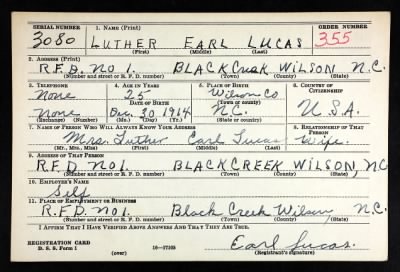 SERIAL NUMBER 1. NAME (Print) ORDER NUMBER
3080 LUTHER EARL LUCAS 355
(First) (Middle) (Last)
2. ADDRESS (Print)
R.F.D. NO 1. BLACK CREEK WILSON N.C.
(Number and street or R. F. D. number) (Town) (County) (State)
3. TELEPHONE 4. AGE IN YEARS 5. PLACE OF BIRTH 6. COUNTRY OF CITIZENSHIP
None 25 Wilson Co
DATE OF BIRTH (Town or county)
None Dec. 30 1914 N.C. U.S.A.
(Exchange) (Number) (Mo.) (Day) (Yr.) (State or country)
7. NAME OF PERSON WHO WILL ALWAYS KNOW YOUR ADDRESS 8. RELATIONSHIP OF THAT PERSON
Mrs. Luther Earl Lucas Wife.
(Mr., Mrs., Miss) (First) (Middle) (Last)
9. ADDRESS OF THAT PERSON
R.F.D. NO 1. BLACK CREEK WILSON, NC
(Number and street or R. F. D. number) (Town) (County) (State)
10. EMPLOYER'S NAME
Self
11. PLACE OF EMPLOYMENT OR BUSINESS
R.F.D. NO 1. Black Creek Wilson, N.C.
(Number and street or R. F. D. number) (Town) (County) (State)
I AFFIRM THAT I HAVE VERIFIED ABOVE ANSWERS AND THAT THEY ARE TRUE.
REGISTRATION CARD
D. S. S. Form 1 (over) 16-17105 Earl Lucas.
(Registrant's signature)